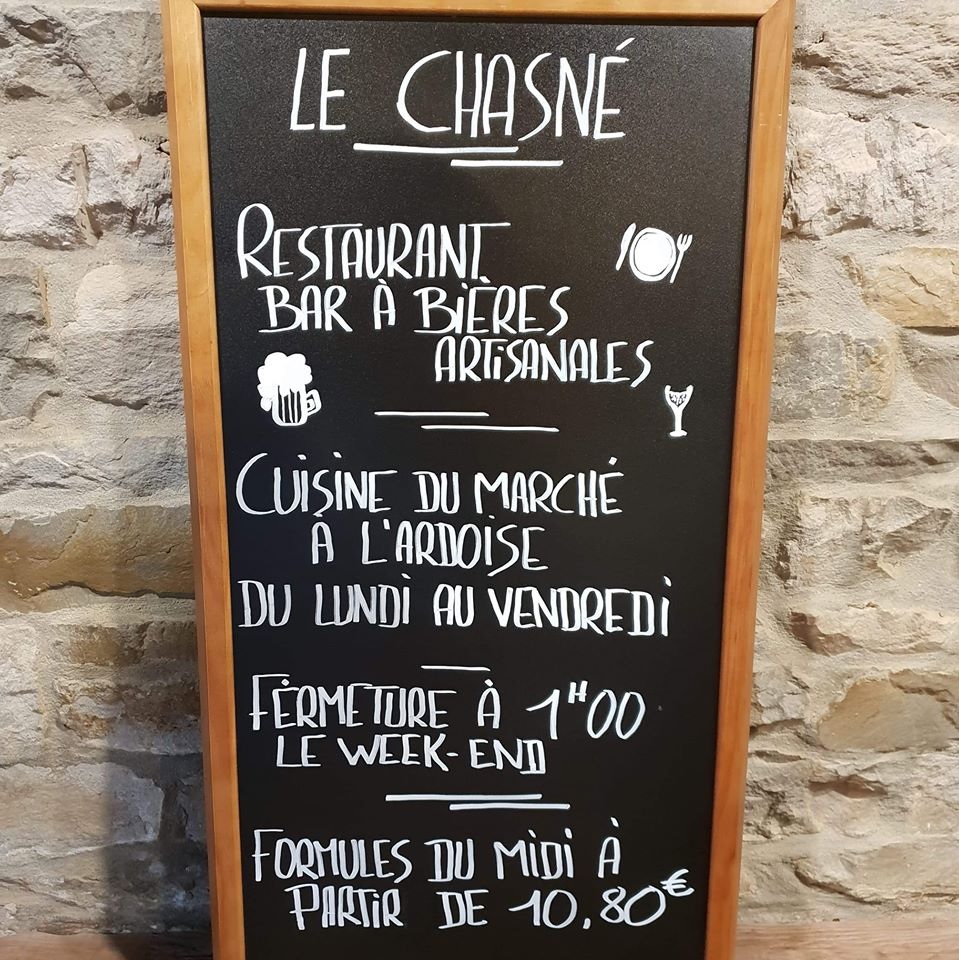 LE CHASNÉ
RESTAURANT
BAR À BIÈRES
ARTISANALES
CUISINE DU MARCHÉ
À L'ARDOISE
DU LUNDI AU VENDREDI
FERMETURE À 1H00
LE WEEK-END
FORMULES DU MIDI À
PARTIR DE 10,80€